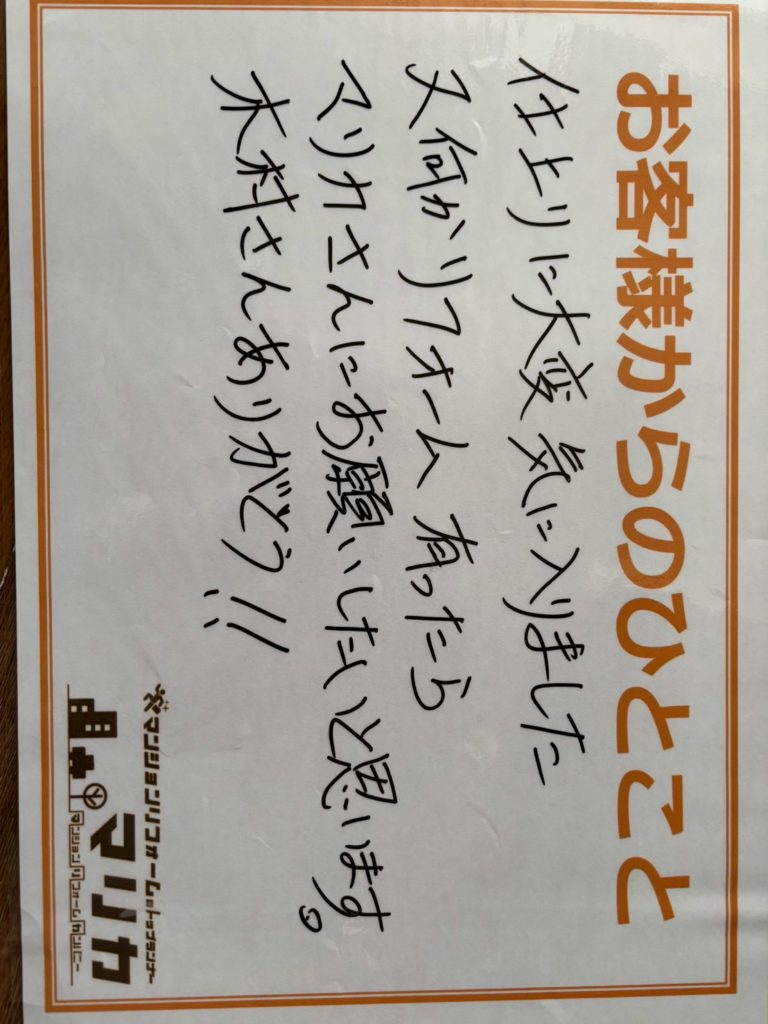 お客様からのひとこと
仕上りに大変気に入りました
又何かリフォーム有ったら
マリカさんにお願いしたいと思います。
木村さんありがどう!!
マンションリフォームのトップランナー
マリカ
マンションリフォームカンパニー